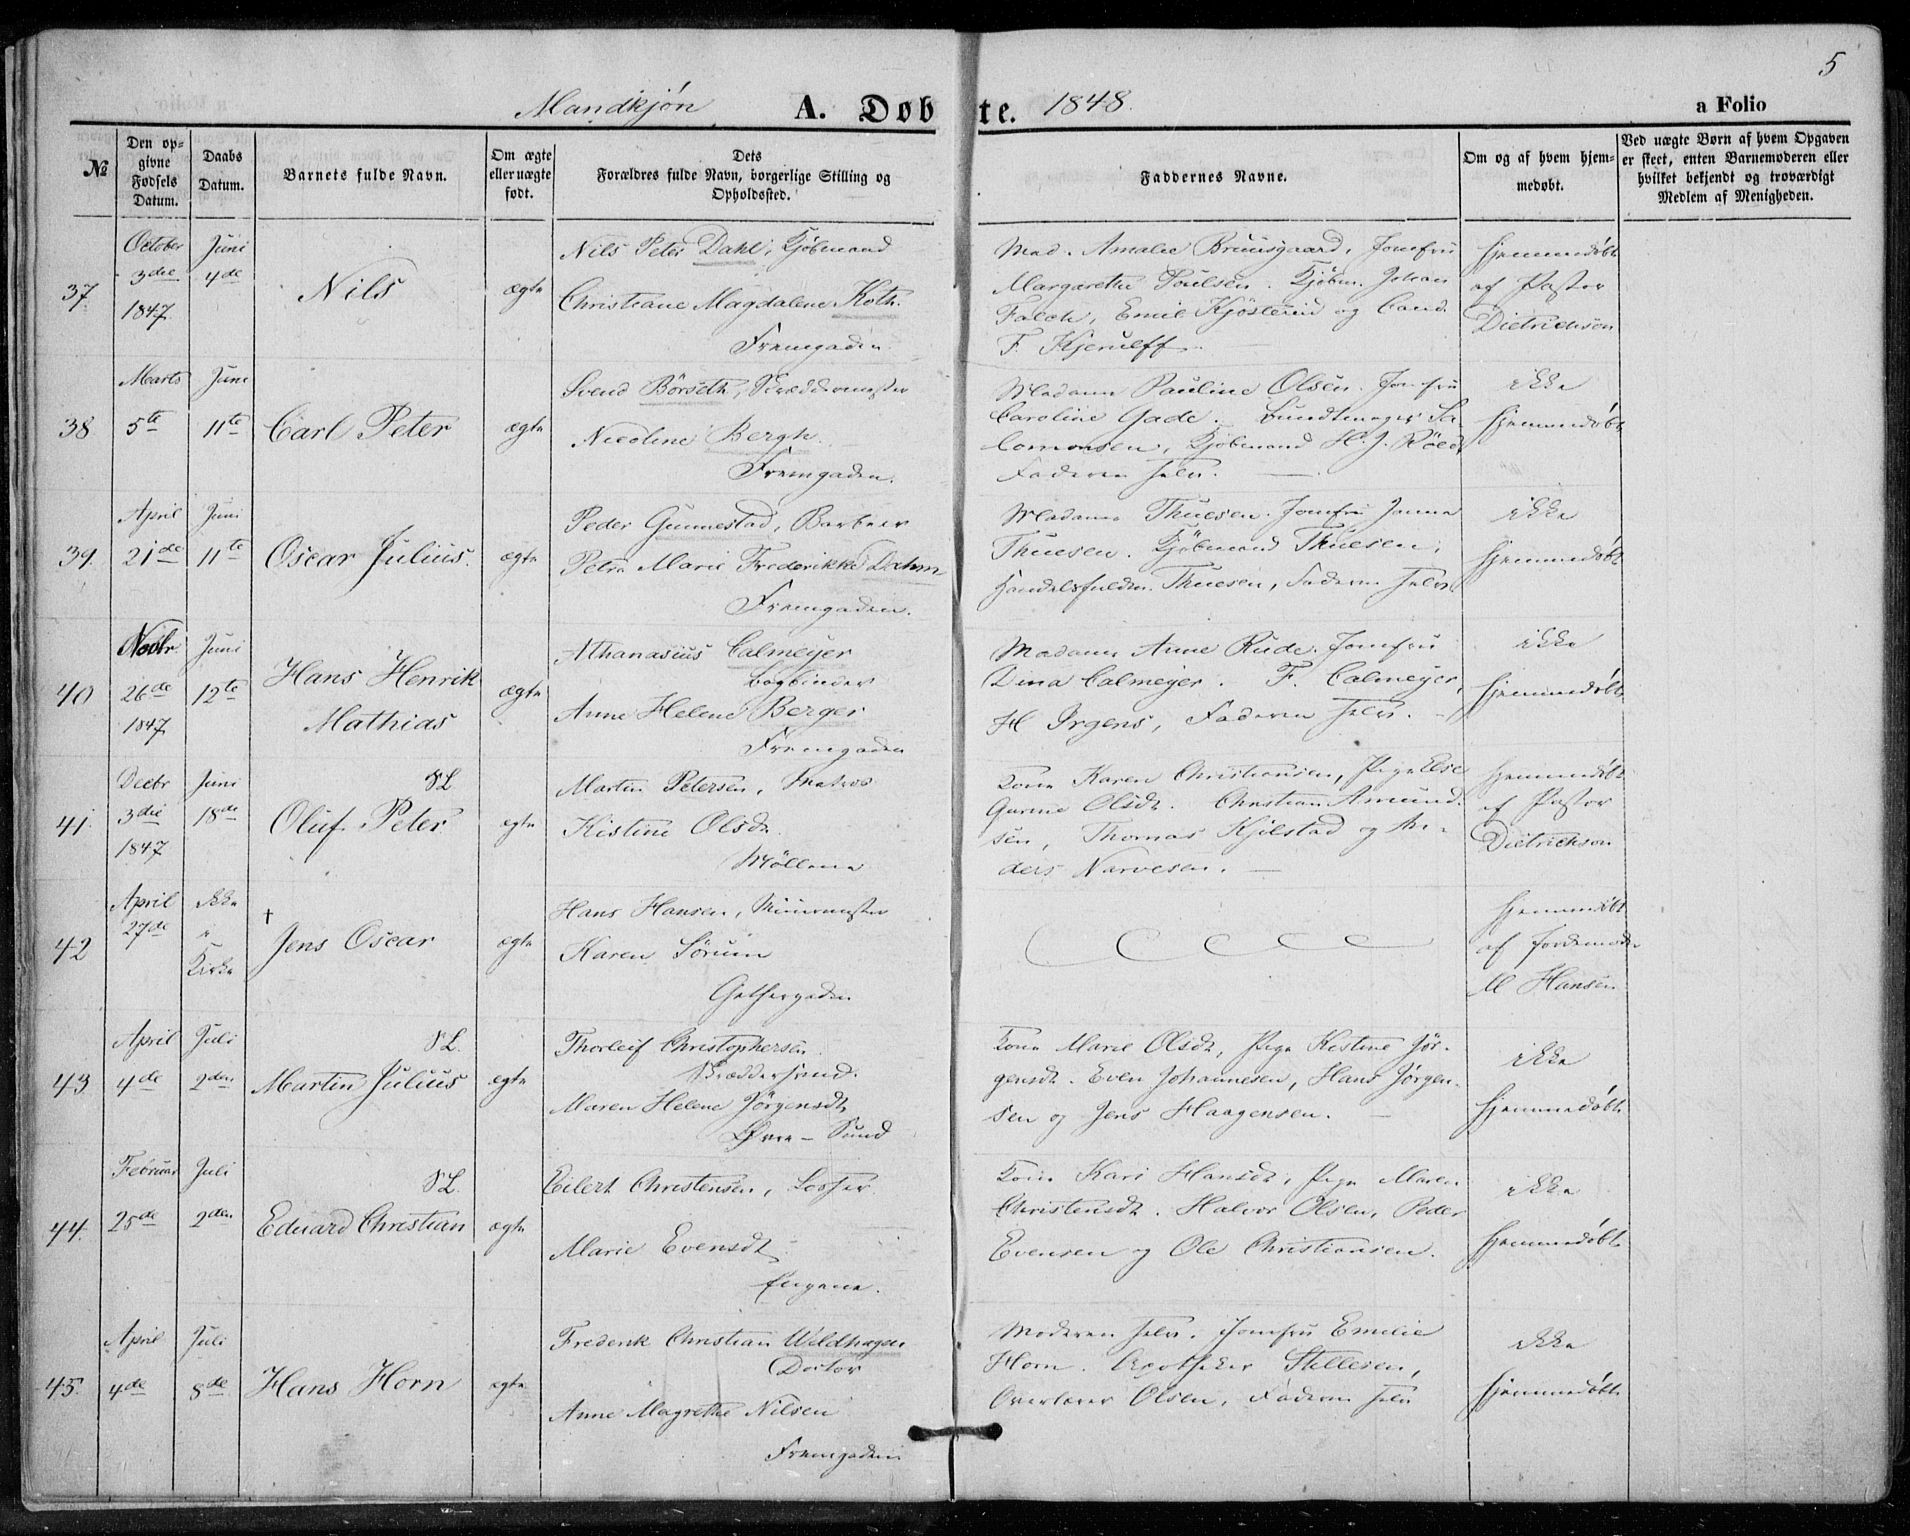 5
Mandkjøn A. Døbte. 1848. a Folio
№
Den opgivne Fødsels Datum.
Daabs Datum.
Barnets fulde Navn.
Om ægte eller uægte født.
Dets
Forældres fulde Navn, borgerlige Stilling og
Opholdssted.
Faddernes Navne.
Om og af hvem hjemmedøbt.
Ved uægte Børn af hvem Opgaven
er skeet, enten Barnemoderen eller
hvilket bekjendt og troværdigt
Medlem af Menigheden.
37.
October
3die
1847
Juni
4de
Nils
ægte
Nils Peter Dahl, Kjøbmand
Christiane Magdalene Koth.
Fremgaden.
Mad. Amalie Bruusgaard, Jomfru
Margarethe Poulsen. Kjøbm. Johan
Falch, Emil Kjöslerud og Cand.
F. Kjerulff.
hjemmedøbt
af Pastor
Dietrichson
38
Marts
5te
Juni
11te
Carl Peter
ægte
Svend Börseth, Skræddermester
Nicoline Bergh.
Fremgaden.
Madame Pauline Olsen. Jomfru
Caroline Gade. Bundtmager Sa-
lomonsen, Kjøbmand H. J. Röed,
Faderen selv.
ikke
hjemmedøbt
39.
April
21de
Juni
11te
Oscar Julius.
ægte
Peder Gunnestad, Barbeer
Petra Marie Frederikke Dahm
Fremgaden.
Madame Thuesen. Jomfru Janna
Thuesen. Kjøbmand Thuesen,
Handelsfuldm. Thuesen, Faderen selv
ikke
hjemmedøbt
40
Novbr
26de
1847
Juni
12te
Hans Henrik
Mathias
ægte
Athanasius Calmeyer
Bogbinder
Anne Helene Berger
Fremgaden
Madame Anne Rude. Jomfru
Dina Calmeyer. F. Calmeyer,
H Irgens, Faderen selv.
ikke
hjemmedøbt
41.
Decbr
3die
1847
Juni
18de
SL
Oluf Peter
ægte
Martin Petersen, Matros
Kistine Olsdt.
Möllene
Kone Karen Christiansen, Pige Else
Gurine Olsdt. Christian Amund-
sen, Thomas Kjölstad og An-
ders Narvesen.
hjemmedøbt
af Pastor
Dietrichson
42
April
27de
ikke
i
Kirke
†
Jens Oscar
ægte
Hans Hansen, Muurmester
Karen Sörum
Gethergaden
hjemmedøbt
af Jordemoder
M Hansen
43
April
4de
Juli
2den
SL.
Martin Julius
ægte
Thorleif Christophersen.
Skræddersvend.
Maren Helene Jörgensdt,
Øvre-Sund
Kone Marie Olsdt, Pige Kistine Jör-
gensdt. Even Johannesen, Hans Jörgen-
sen og Jens Haagensen.
ikke
hjemmedøbt
44.
Februar
25de
Juli
2den
SL.
Eduard Christian
ægte
Eilert Christensen, Losser
Marie Evensdt
Engene.
Kone Kari Hansdt, Pige Maren
Christensdt. Halvor Olsen, Peder
Evensen og Ole Christiansen.
ikke
hjemmedøbt
45.
April
4de
Juli
8de
Hans Horn
ægte
Frederik Christian Weldhagen
Doctor
Anne Magrethe Nilsen
Fremgaden
Moderen selv. Jomfru Emilie
Horn. Apotheker Stillesen,
Overlærer Olsen, Faderen selv
ikke
hjemmedøbt